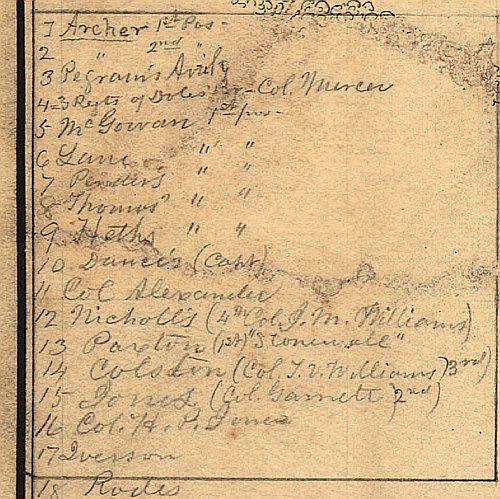 1 Archer 1st Pos-
2 " 2nd "
3 Pegram's Artily
4=3 Regts of Doles' Br- Col. Mercer
5 McGowan 1st pos-
6 Lane " "
7 Pender's " "
8 Thomas' " "
9 Heths " "
10 Dance's (Capt)
11 Col Alexander
12 Nicholl's (4th Col. J. M. Williams)
13 Paxton (1st) "Stonewall"
14 Colston (Col. T. V. Williams) 3rd)
15 Jones (Col. Garnett 2nd)
16 Col. H. P. Jones
17 Iverson
18 Rodes